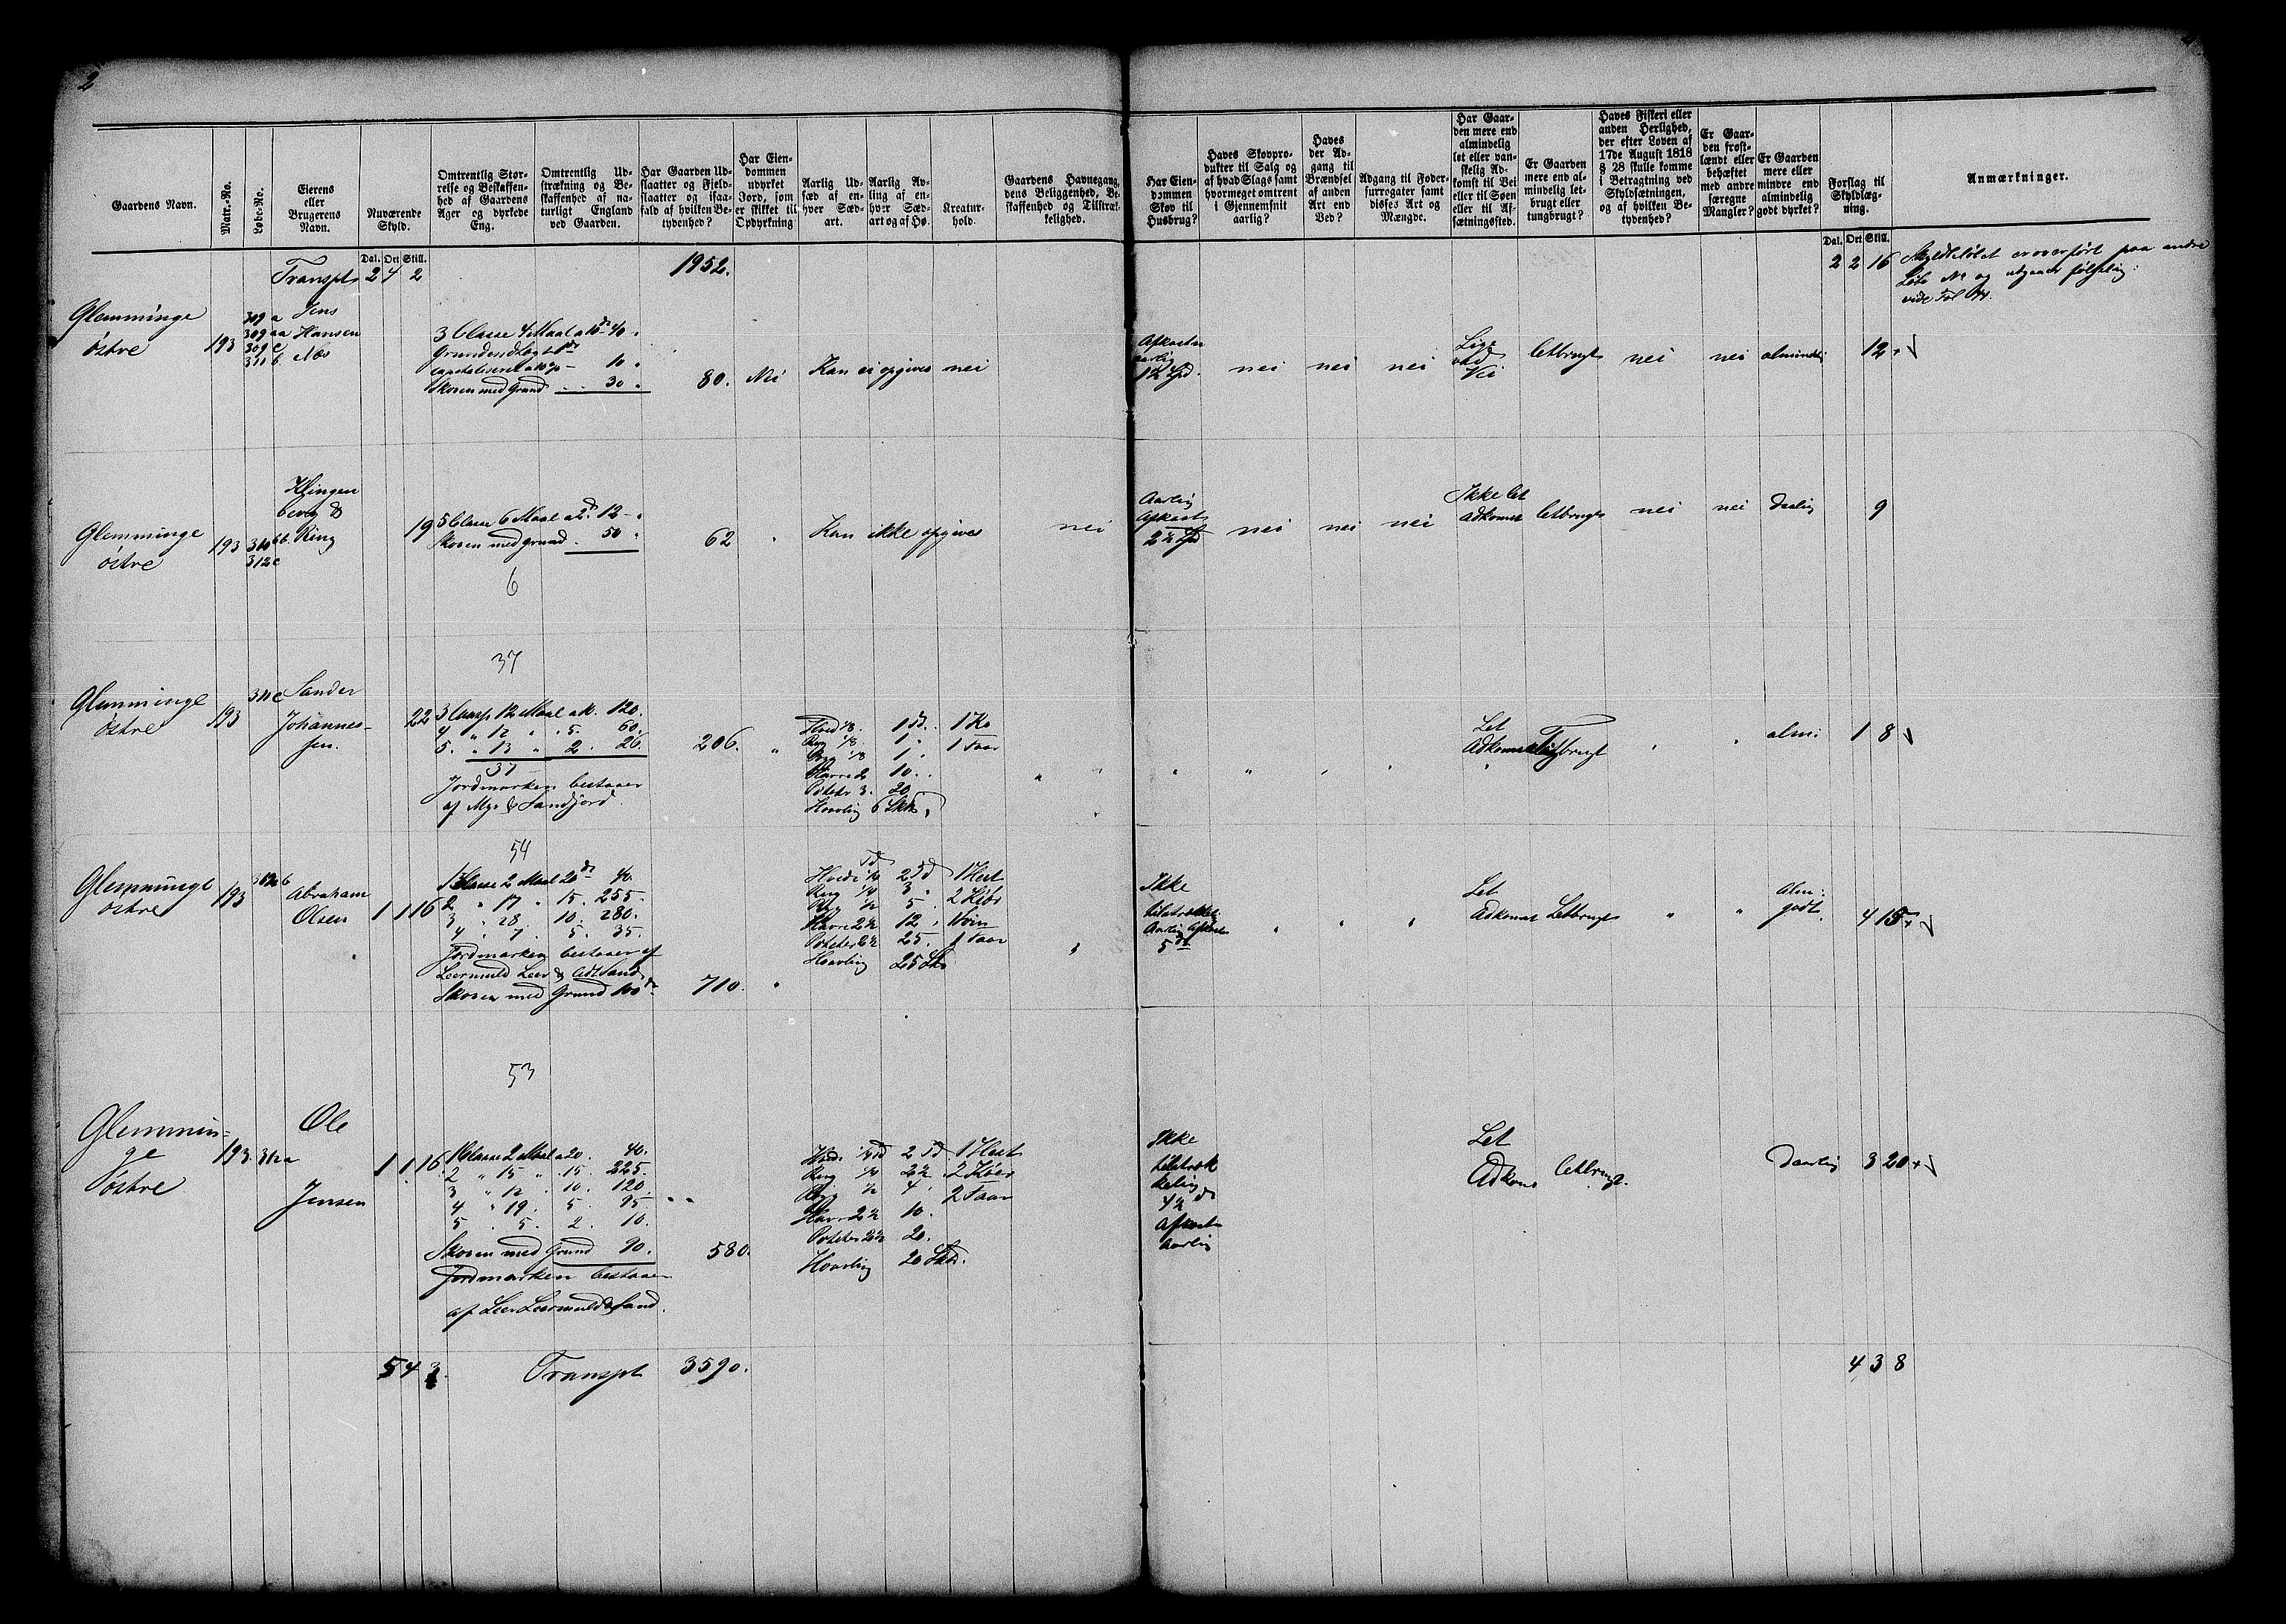 2
Gaardens Navn.
Matr.-No.
Løbe-No.
Eierens eller Brugerens Navn.
Nuværende Skyld.
Omtrentlig Størrelse og Beskaffenhed af Gaardens Ager og dyrkede Eng.
Omtrentlig Udstrækning og Beskaffenhed af naturligt England ved Gaarden.
Har Gaarden Udslaatter og Fjeldslaatter og isaafald af hvilken Betydenhed?
Har Eiendommen udyrket Jord, som er skikket til Opdyrkning
Aarlig Udsæd af enhver Sædart.
Aarlig Avling af enhver Sædart og af Hø.
Kreaturhold.
Gaardens Havnegang, dens Beliggenhed, Beskaffenhed og Tilstrækkelighed.
Har Eiendommen Skov til Husbrug?
Haves Skovprodukter til Salg og af hvad Slags samt hvormeget omtrent i Gjennemsnit aarlig?
Haves der Adgang til Brændsel af anden Art end Ved?
Adgang til Fodersurrogater samt disses Art og Mængde.
Har Gaarden mere end almindelig let eller vanskelig Adkomst til Vei eller til Søen eller til Afsætningssted.
Er Gaarden mere end almindelig letbrugt eller tungbrugt?
Haves Fiskeri eller anden Herlighed, der efter Loven af 17de August 1818 § 28 skulle komme i Betragtning ved Skyldsætningen, og af hvilken Betydenhed?
Er Gaarden frostlændt eller behæftet med andre særegne Mangler?
Er Gaarden mere eller mindre end almindelig godt dyrket?
Forslag til Skyldlægning.
Anmærkninger.
Dal. Ort Skill.
Dal. Ort Skill.
Transpt 2 4 2
1952.
2 2 16
Skyldbeløbet er overført paa andre
Løbe No og udgaar følgelig:
Glemminge
østre
193
309 a
309 aa
309 c
311 b.
Jens
Hansen
Næs
3 Classe 4 Maal a 10 d 40.
10.
Skoven med Grund 30.
80.
Nei
Kan ei opgives
nei
Afkaster
aarlig
1½ Spd.
nei
nei
nei
Lige
ved
Vei
letbrugt
nei
nei
almindelig
12
Glemminge
østre
193
310 bb.
312 c
Klingen
berg &
Ring
19
5 Classe 6 Maal a 2 d 12.
Skoven med Grund 50.
62
6
Kan ikke opgives
nei
Aarlig
Afkast
2½ Spd
nei
nei
nei
Ikke let
Adkomst
letbrugt
nei
nei
daarlig
9
37
Glemminge
østre
193
311 c
Sander
Johannes-
sen.
22
3 Classe 12 Maal a 10. 120.
4 " 12 " 5. 60.
5. " 13 " 2. 26.
37
206.
Jordmarken bestaaer
af Myr & Sandjord.
Hvede 1/8. 1 Td.
Rug 1/8 1.
Byg 1/8 1.
Havre 2 10.
Poteter 3. 20.
Høavling 6 Skk
1 Ko
1 Faar
Let
Adkomst
Tungbrugt
alm:
1 8
54
Glemminge
østre
193
312 b
Abraham
Olsen
1 1 16
1 Classe 2 Maal 20 d 40.
2 " 17 " 15. 255.
3 " 28 10. 280.
4 . 7. 5. 35.
Jordmarken bestaaer af
Leermuld Leer & lidt Sand
Skoven med Grund 100 d
710.
Hvede 1/4 2 Td
Rug 1/4 3
Byg 1/2 5.
Havre 2½ 12
Poteter 2½ 25.
Høavling 25 Skk
1 Hest
2 Kør
1 Sviin
1 Faar
Ikke
tilstrækkel.
Aarlig Afkast
5 d
Let
Adkomst
Letbrugt
Alm:
godt.
4 15
53
Glemmin-
ge
østre
193.
312 a
Ole
Jensen
1 1 16.
1 Classe 2 Maal a 20. 40.
2 " 15 " 15. 225.
3 " 12 . 10. 120
4 " 19. 5. 95
5 . 5. 2. 10.
Skoven med Grund 90.
580.
Jordmarken bestaaer
af Leer Leermuld & Sand.
Hvede 1/4 Td 2 Td.
Rug 1/4 2½
Byg 1/2 4.
Havre 2½ 10.
Poteter 2½ 20.
Høavling 20 Skk.
1 Hest
2 Køer
2 Faar
Ikke
tilstræk
kelig
4½ d
Afkast
aarlig
Let
Adkoms
letbrugt.
Daarlig
3 20
5 4 3.
Transpt 3590.
4 3 8